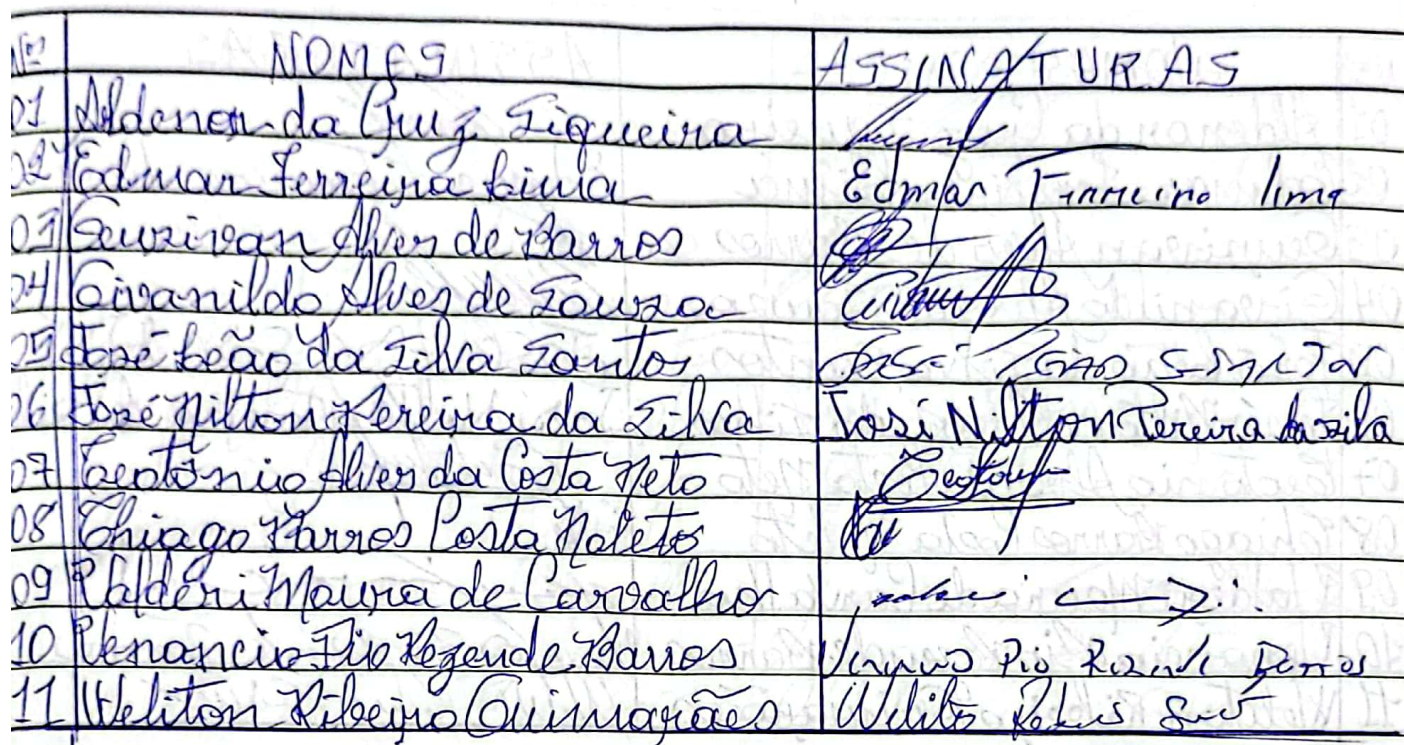 Nº NOMES ASSINATURAS
01 Aldenor da Cruz Siqueira
02 Edmar Ferreira Lima Edmar Ferreira lima
03 Geurivan Alves de Barros
04 Givanildo Alves de Souza
05 José Leão da Silva Santos José Leão S Santos
06 José Nilton Pereira da Silva José Nilton Pereira da silva
07 Teotônio Alves da Costa Neto Teotony
08 Thiago Barros Costa Noleto
09 Valderi Moura de Carvalho
10 Venancio Pio Rezende Barros Pio Rezende Barros
11 Weliton Ribeiro Guimarães